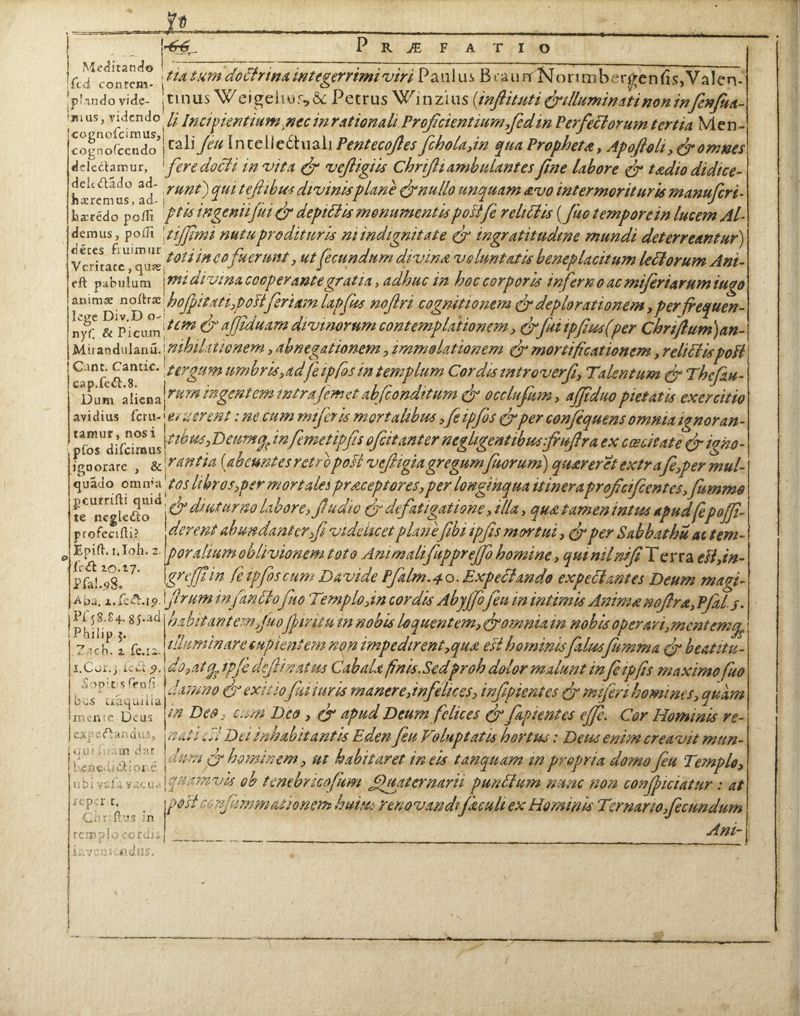 70
66
PRÆFATIO
Meditando
sed contem-
plando vide-
mus, videndo
cognoscimus,
cognoscendo
delectamur,
delectãdo ad-
hæremus, ad-
hærẽdo possi
demus, possi
dẽtes fruimur
Veritate, quæ
est pabulum
animæ nostræ
lege Div. D o-
nys. & Picum
Mirandulanũ.
Cant. Cantic.
cap. sect. 8.
Dum aliena
avidius scru-
tamur, nos i
psos discimus
ignorare, &
quãdo omnia
pcurristi quid
te neglecto
profecisti?
Epist. 1. Ioh. 2
sect 20. 27.
Psal. 98.
Aba. 2. sect. 19.
Ps 58. 84. 85. ad
Philip 3.
Zach. 2 se. 12.
1. Cor. 3. sect 9.
Sopitis sensi
bus trãquilla
mente Deus
expectandus,
qui suam dat
benedictionẽ
ubi vasa vacua
reperit,
Christus in
templo cordis
inveniendus.
tia tum doctrina integerrimi viri Paulus Braun Norimbergensis, Valen-
tinus Weigelius, & Petrus Winzius (instituti & illuminati non in sensua-
li Incipientium, nec in rationali Proficientium, sed in Perfectorum tertia Men-
tali seu Intellectuali Pentecostes schola, in qua Prophetæ, Apostoli, & omnes
fere docti in vita & vestigiis Christi ambulantes sine labore & tædio didice-
runt) qui testibus divinis plane & nullo unquam ævo intermorituris manuscri-
ptis ingenii sui & depictis monumentis post se relictis (suo tempore in lucem Al-
tissimi nutu prodituris ni indignitate & ingratitudine mundi deterreantur)
toti in eo fuerunt, ut secundum divinæ voluntatis beneplacitum lectorum Ani-
mi divina cooperante gratia, adhuc in hoc corporis inferno ac miseriarum iugo
hospitati, post seriam lapsus nostri cognitionem & deplorationem, per frequen-
tem & assiduam divinorum contemplationem, & sui ipsius (per Christum) an-
nihilationem, abnegationem, immolationem & mortificationem, relictis post
tergum umbris, ad se ipsos in templum Cordis introversi, Talentum & Thesau-
rum ingentem intra semet absconditum & occlusum, assiduo pietatis exercitio
eruerent: ne cum miseris mortalibus, se ipsos & per consequens omnia ignoran-
tibus, Deumq;, in semetipsis oscitanter negligentibus: frustra ex cœcitate & igno-
rantia (abeuntes retro post vestigia gregum suorum) quærerẽt extra se, per mul-
tos libros, per mortales præceptores, per longinqua itinera proficiscentes, summo
& diuturno labore, studio & defatigatione, illa, quæ tamen intus apud se possi-
derent abundanter, si videlicet plane sibi ipsis mortui, & per Sabbathũ ac tem-
poralium oblivionem toto Animali suppresso homine, qui nil nisi Terra est, in-
gressi in se ipsos cum Davide Psalm. 40. Expectando expectantes Deum magi-
strum in sancto suo Templo, in cordis Abysso seu in intimis Animæ nostræ, Psal 5.
habitantem, suo spiritu in nobis loquentem, & omnia in nobis operari, mentemq;
illuminare cupientem non impedirent, quæ est hominis salus summa & beatitu-
do, atq; ipse destinatus Cabalæ finis. Sed proh dolor malunt in se ipsis maximo suo
damno & exitio sui iuris manere, infelices, insipientes & miseri homines, quàm
in Deo, cum Deo, & apud Deum felices & sapientes esse. Cor Hominis re-
nati est Dei inhabitantis Eden seu Voluptatis hortus: Deus enim creavit mun-
dum & hominem, ut habitaret in eis tanquam in propria domo seu Templo,
quamvis ob tenebricosum Quaternarii punctum nunc non conspiciatur: at
post consummationem huius renovandi sæculi ex Hominis Ternario, secundum
Ani-